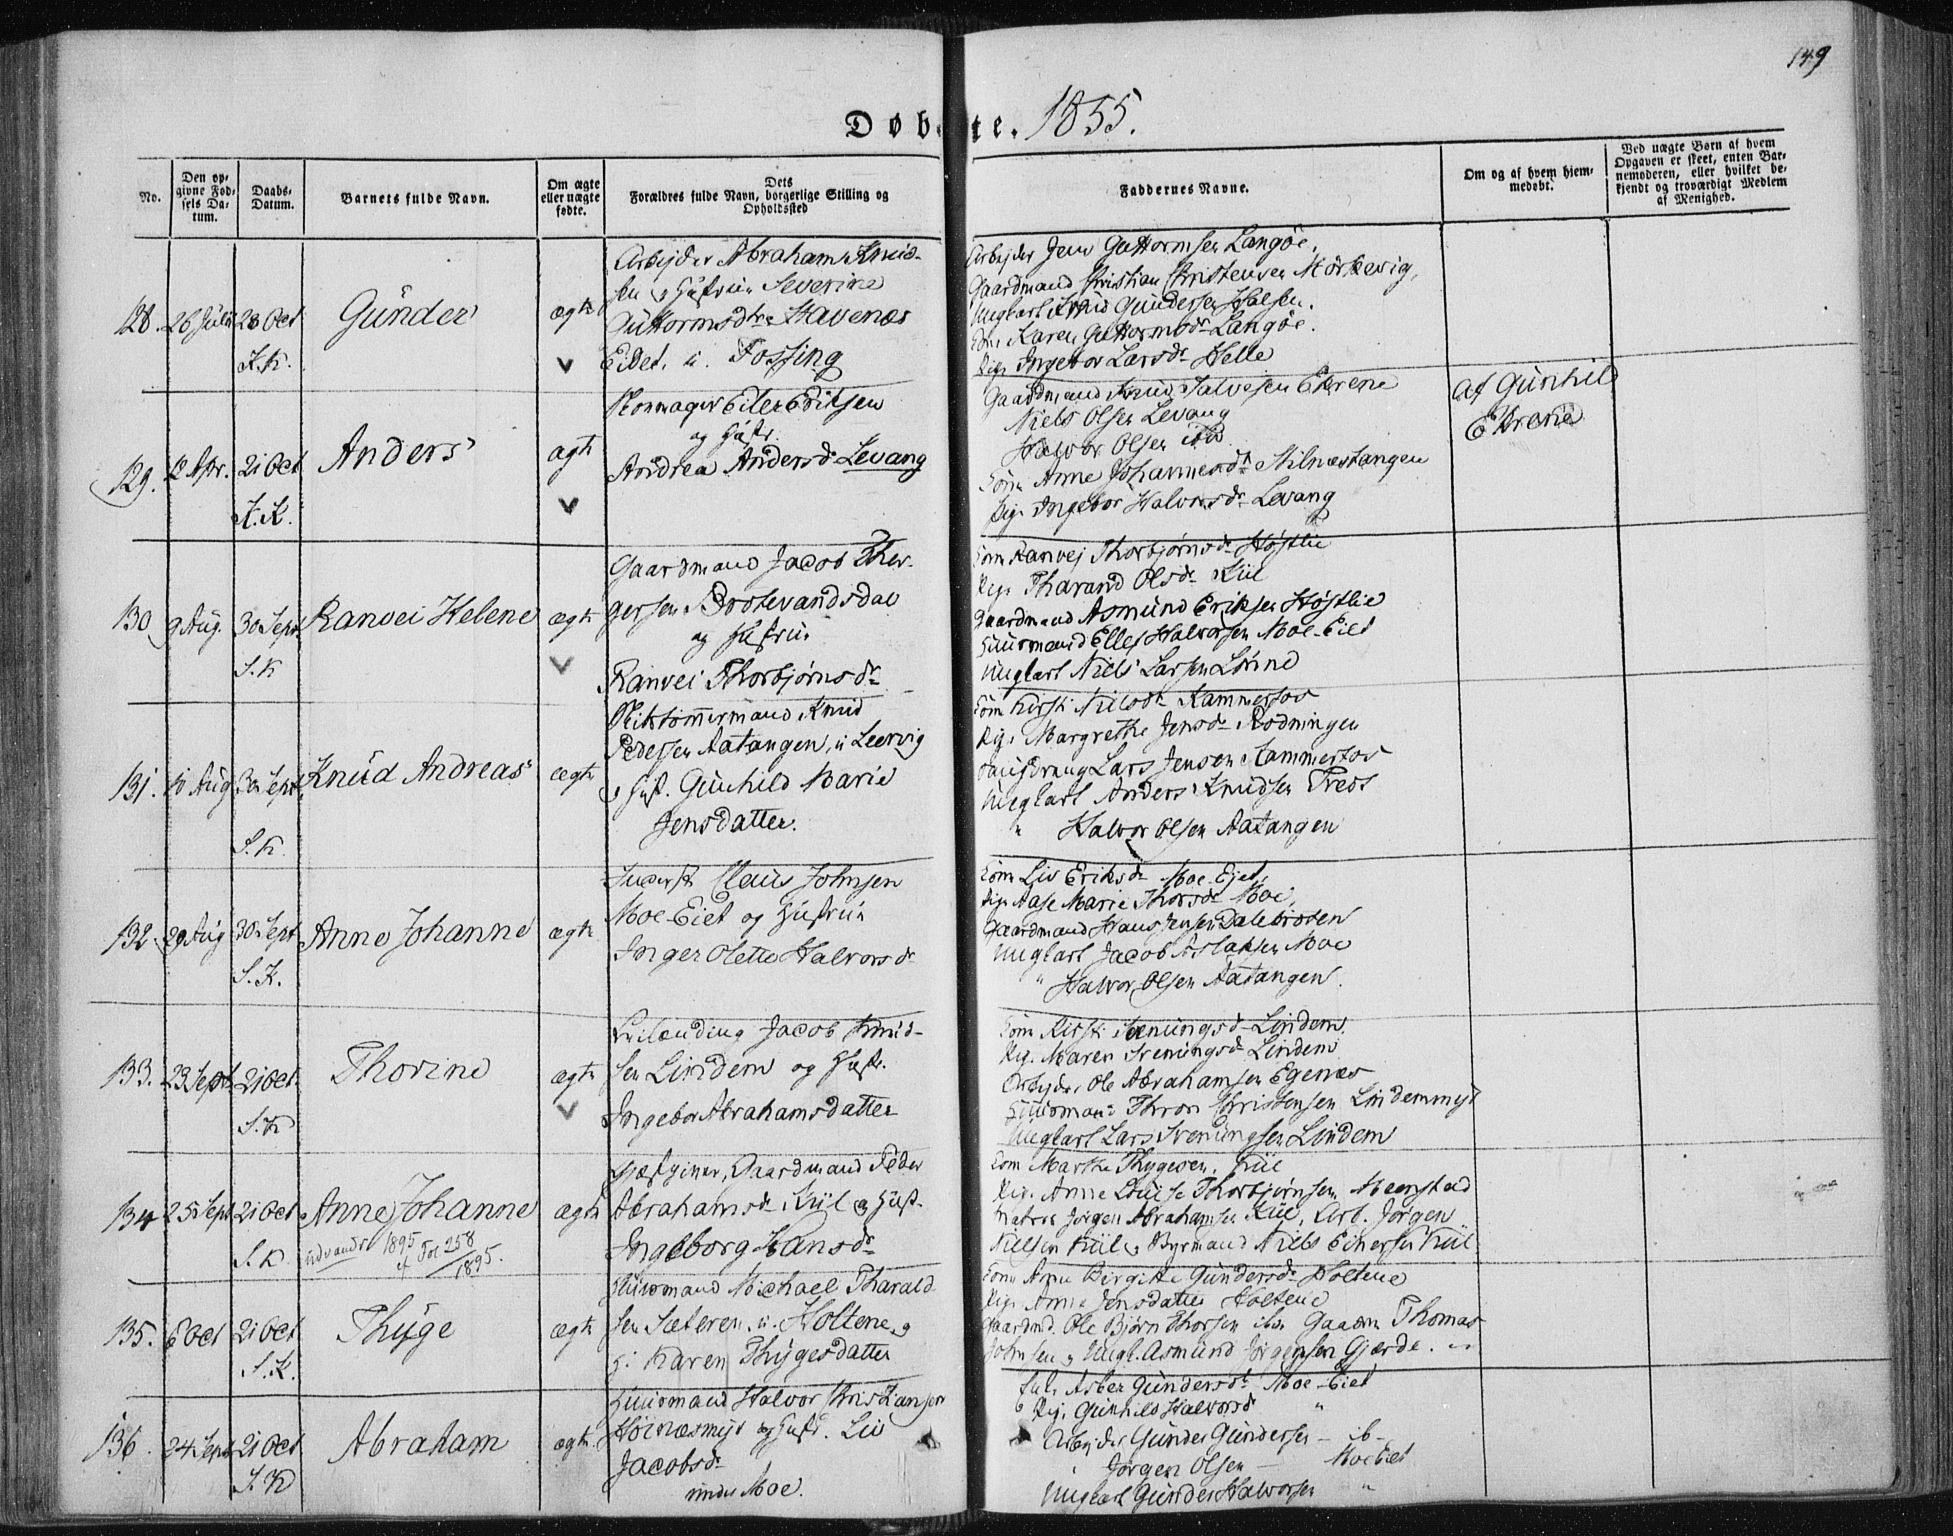 149
Døbte. 1855.
No.
Den opgivne Fødsels Datum.
Daabs-Datum.
Barnets fulde Navn.
Om ægte eller uægte fødte.
Dets Forældres fulde Navn, borgerlige Stilling og Opholdssted
Faddernes Navne.
Om og af hvem hjemmedøbt.
Ved uægte Børn af hvem Opgaven er skeet, enten Barnemoderen, eller hvilket bekjendt og troværdigt Medlem af Menighed.
128. 26 Juli 28 Oct Gunder ægte
Arbejder Abraham Knud-
sen og Hustrue Severine
Guttormsdtr Stavenæs
Eidet, u. Fossing
Arbejder Jens Guttormsen Langøe,
Gaardmand Christian Christensen Mørkevig,
Ungkarl Knud Gundersen Halsen.
Kone Karen Guttormsdr Langøe.
Pige Ingebor Larsdr Helle
129. 12 Apr. 21 Oct Anders ægte
Eilert Eriksen
og Hustr.
Andrea Andersdr Levang
Gaardmand Knud Halvorsen Ekrene
Niels Olsen Levang
Halvor Olsen ibd
Kone Anne Johannesdr Stilnæstangen
Pige Ingebor Halvorsdr Levang
af Gunhild
Ekrene
130 9 Aug. 30 Sept Ranvei Helene ægte
S.K
Gaardmand Jacob Ther-
gersen Brotevandsdal
og Hustrue
Ranvei Thorbjørnsdr
Kone Ranvej Thorbjørnsdr Høstlie
Pige Tharand Olsdr Kiil
Gaardmand Asmund Eriksen Høstlie
Huusmand Ellef Halvorsen Moe-Eiet
Ungkarl Niels Larsen
131. 10 Aug 30 Sept Knud Andreas ægte
S.K
Skibstømmermand Knud
Pedersen Aatangen, u Leervig
og Hust. Gunhild Marie
Jensdatter.
Kone Kirsti Nilsdr Kammerfos
Pige Margrethe Jensdr Rødningen
Lars Jensen Kammerfos
Ungkarl Anders Knudsen
" Halvor Olsen Aatangen
132. 29 Aug 30 Sept Anne Johanne ægte
S.K.
Inderst Claus Johnsen
Moe-Eiet og Hustrue
Inger Olette Halvorsdr
Kone Liv Eriksdr Moe-Ejet,
Pige Aase Marie Thorsdr Moe,
Gaardmand Hans Jensen Dalebroten
Ungkarl Jacob Aslaksen Moe
" Halvor Olsen Aatangen.
133. 23 Sept 21 Oct Thorine ægte
S.K
Leilænding Jacob Knud-
sen Lindem og Hustr.
Ingebor Abrahamsdatter
Kone Kirsti Svenungsd Lindem
Pig. Maren Svenungsdr Lindem
Arbejder Ole Abrahamsen Egenæs
Huusmand Thron Christensen Lindemmyr
Ungkarl Lars Svenungsen Lindem
134 25 Sept 21 Oct Anne Johanne ægte
S.K udvandr 1895
cf Fol 258
1895.
Gæstgiver, Gaardmand Peder
Abrahams. Kiil og Hust.
Ingeborg Hansdr
Kone Marthe Thygesen, Kiil
Pig. Anne Louise Thorbjørnsen
Matros Jørgen Abrahamsen Kiil, Arb. Jørgen
Nielsen Kiil og Niels Einersen Kiil.
135. 6 Oct 21 Oct Thyge ægte
S.K.
Huusmand Michael Tharald-
sen Sæteren, u. Holtene og
H. Karen Thygesdatter
Kone Anne Birgitte Gundersdr Holtene
Pige Anne Jensdatter Holtene
Gaardmd. Ole Bjørn Thorsen ibd. Gaardm Thomas
Johnsen og Ungk. Asmund Jørgensen Gjærde.
136. 24 Sept 21 Oct Abraham ægte
S.K
Huusmand Halvor Kristiansen
og Hustr. Liv
Jacobsdr
under Moe.
Asber Gundersdr Moe-Eiet
Pig. Gunhild Halvorsd "
Arbejder Gunder Gundersen - ib-
Jørgen Olsen - Moe Eiet
Ungkarl Gunder Halvorsen "